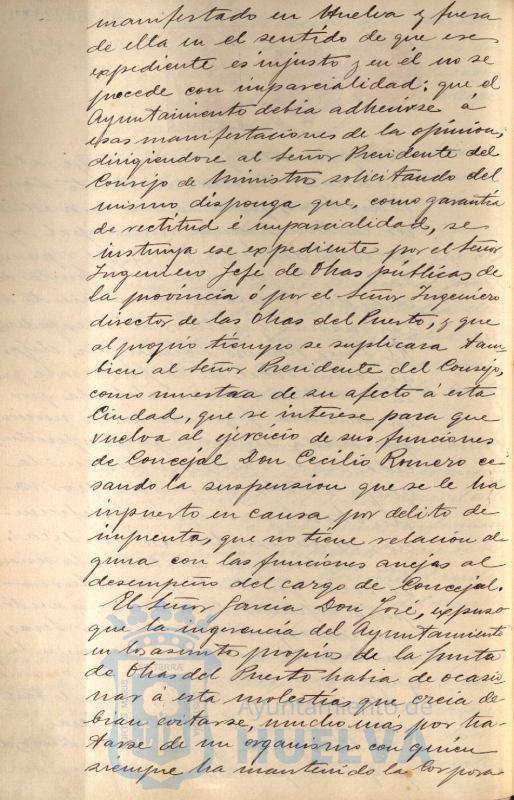 manifestado en Huelva y fuera
de ella en el sentido de que ese
expediente es injusto y en él no se
procede con imparcialidad; que el
Ayuntamiento debia adherirse á
esas manifestaciones de la opinion,
dirigiendose al Señor Presidente del
Consejo de Ministros solicitando del
mismo disponga que, como garantia
de rectitud é imparcialidad, se
instruya ese expediente por el Señor
Ingeniero Jefe de Obras publicas de
la provincia ó por el Señor Ingeniero
director de las Obras del Puerto, y que
al propio tiempo se suplicara tam-
bien al Señor Presidente del Consejo,
como muestra de su afecto á esta
Ciudad, que se interese para que
vuelva al ejercicio de sus funciones
de Concejal Don Cecilio Romero ce
sando la suspension que se le ha
impuesto en causa por delito de
imprenta, que no tiene relacion al
guna con las funciones anejas al
desempeño del cargo de Concejal.
El Señor Garcia Don José, expuso
que la ingerencia del Ayuntamiento
en los asuntos propios de la Junta
de Obras del Puerto habia de ocasio
nar á esta molestia que creia de
bian evitarse, mucho más por tra
tarse de un organismo con quien
siempre ha mantenido la Corpora
Ayuntamiento de
HUELVA